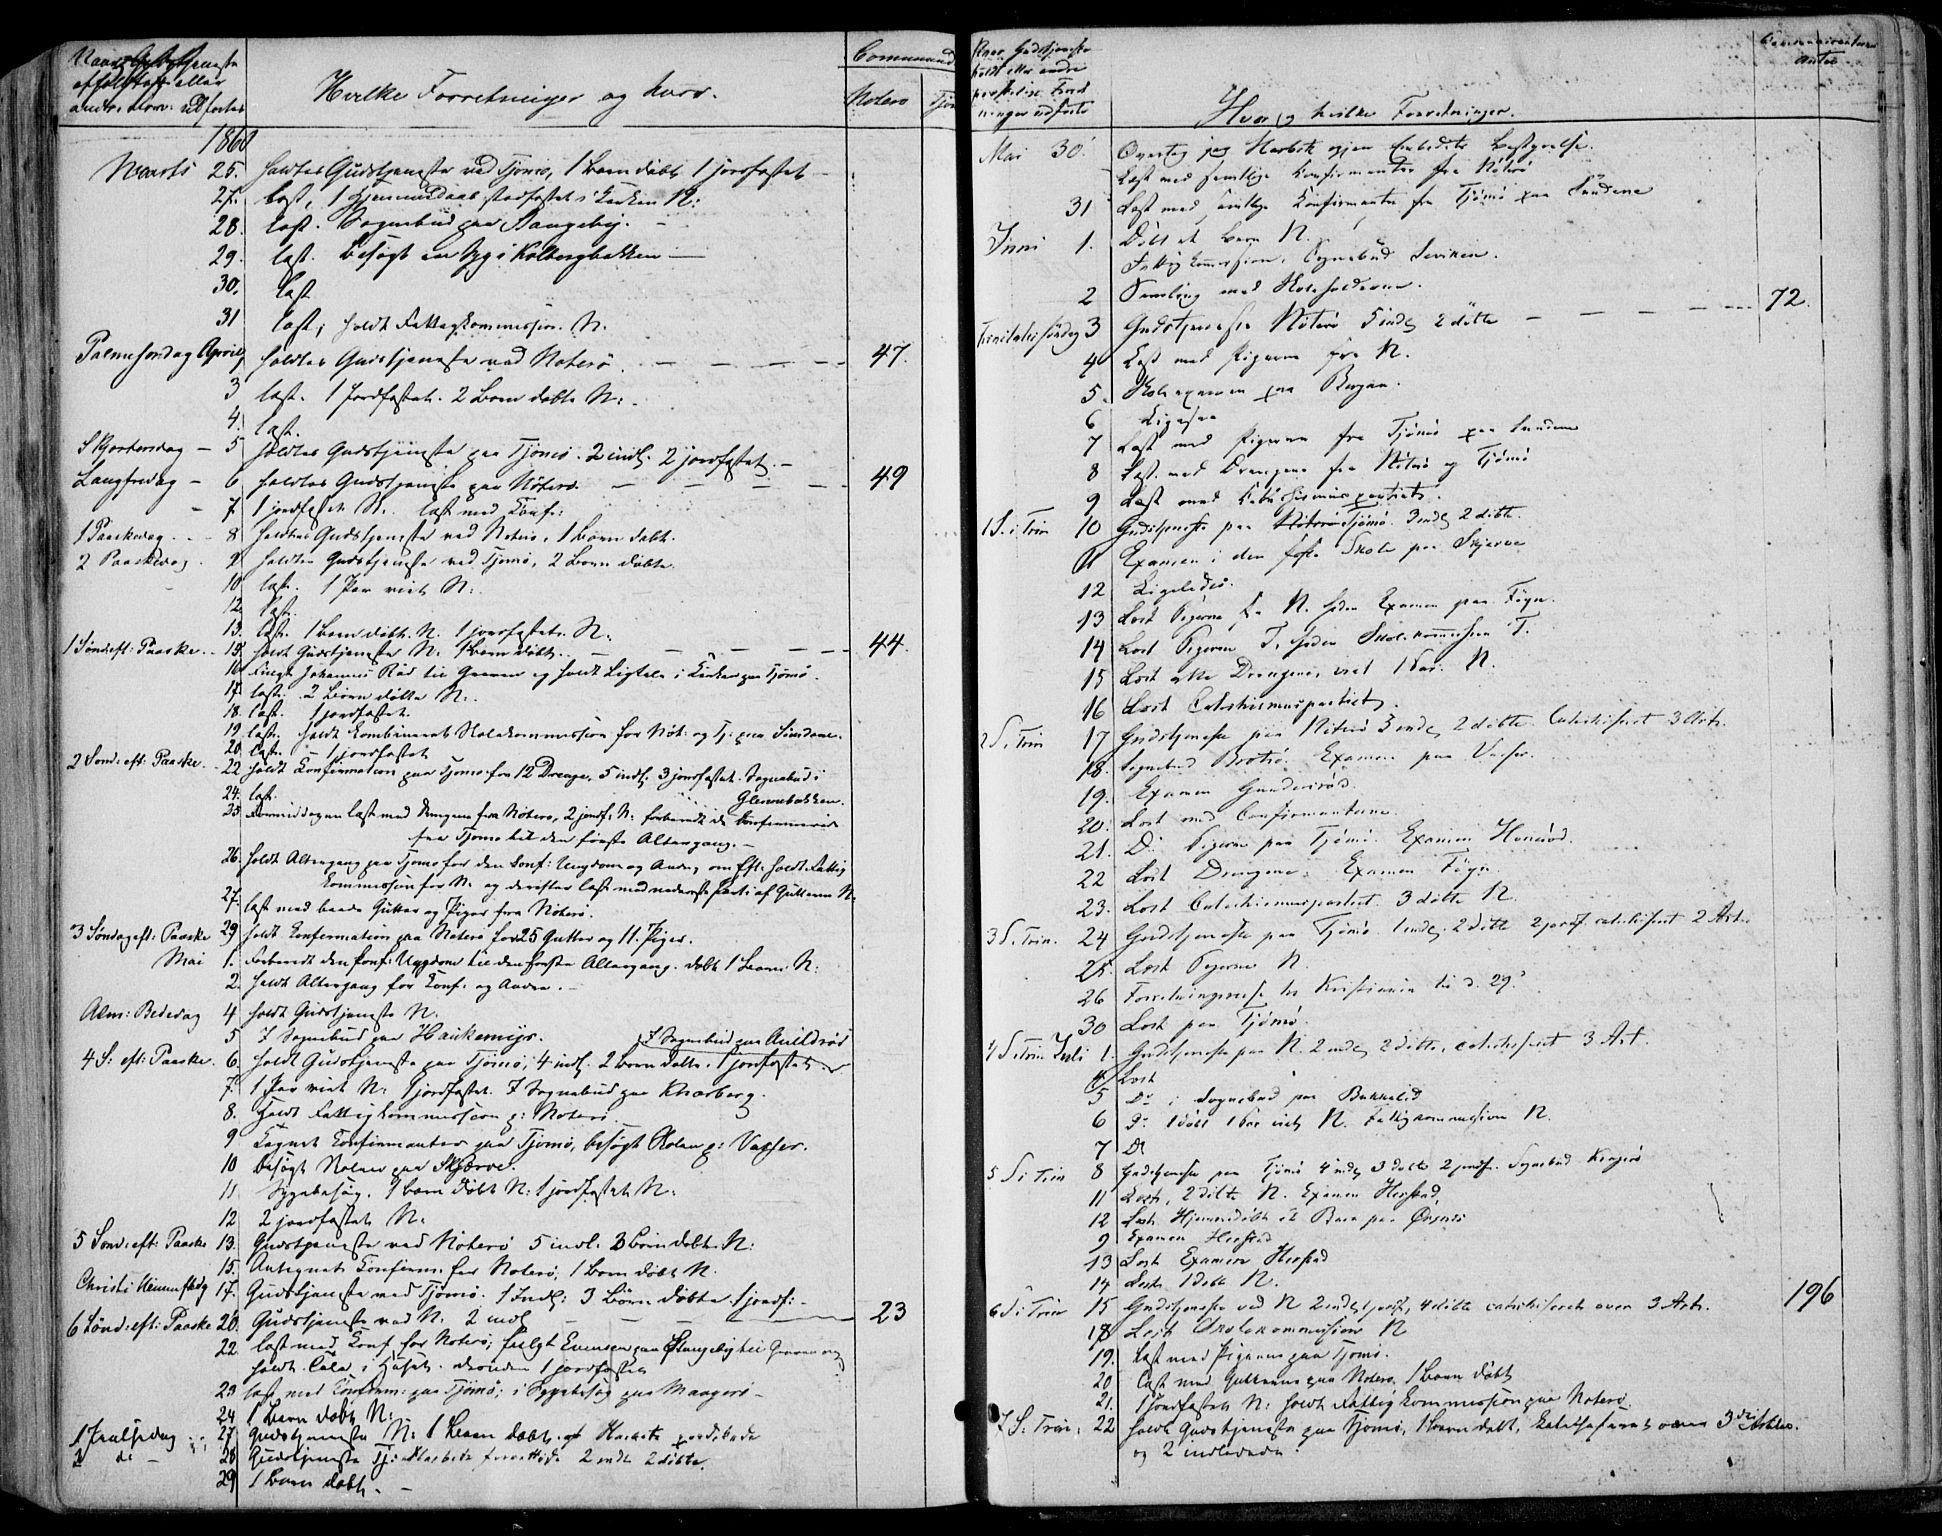 Hvilke Forretninger og hvor.
Communic
Noterø Tjøm
1860
Marts 25. holdtes Gudstjeneste ved Tjømø, 1 Barn døbt 1 jordfæstet
27. læst, 1 Hjemmedaab stadfæstet i Kirken N:
28. læst. Sognebud paa
29. læst. Besøgt en Syg i Kolbergbakken
30. læst
31 læst, holdt Fattigkommission. N.
Palmesøndag April 1 holdtes Gudstjeneste ved Noterø 47.
3 læst. 1 Jordfæstet. 2 Børn døbte N:
4. læst.
Skjertorsdag 5 holdtes Gudstjeneste paa Tjømø. 2 indl. 2 jordfæstet.
Langfredag 6 holdtes Gudstjeneste paa Nøterø. 49
7 1 jordfæstet N. læst med Conf:
1 Paaskedag 8 holdtes Gudstjeneste ved Noterø, 1 Barn døbt.
2 Paaskedag 9 holdtes Gudstjeneste ved Tjømø, 2 Børn døbte.
10 læst. 1 Par viet N:
12 læst.
13. læst. 1 Barn døbt. N. 1 jordfæstet. N.
1 Sønd: eft: Paaske 15 holdt Gudstjeneste N: 1 Barn døbt. 44.
16 fulgte Johannes Rød til Graven og holdt Ligtale i Kirken paa Tjømø.
17. læst. 2 Børn døbte N.
18. læst. 1 jordfæstet.
19. læst. holdt Kombineret Skolekommission for Nøt: og Tj: paa Sundene.
20. læst. 1 jordfæstet
2 Sønd: eft: Paaske 22 holdt Konfirmation paa Tjømø for 12 Drenge, 5 indl. 3 jordfæstet. Sognebud i
24. læst. Glennebakken.
25 Formiddagen læst med Drengene fra Noterø, 2 jordf: N: forberedt de Confirmerede
fra Tjømø til den første Altergang.
26. holdt Altergang paa Tjømø for den Conf: Ungdom og Andre, om Eft: holdt Fattig
Kommission for N. og derefter læst med nederste Parti af Gutterne N:
27. læst med baade Gutter og Piger fra Nøterø.
3 Søndag eft: Paaske 29 holdt Konfirmation paa Noterø for 25 Gutter og 11. Piger.
Mai 1. Forberedt den Conf: Ungdom til den første Altergang. døbt 1 Barn N:
2. holdt Altergang for Conf. og Andre.
Alm: Bededag 4 holdt Gudstjeneste N.
5 I Sognebud paa Haukemyr. I Sognebud paa
4 S: eft: Paaske. 6. holdt Gudstjeneste paa Tjømø, 4 indl. 2 Børn døbte. 1 jordfæstet
7. 1 Par viet N: 1 jordfæstet. I Sognebud paa Knarberg.
8. Holdt Fattigkommission p: Noterø
9 Tegnet Confirmanter paa Tjømø, besøgt Skolen p: Vasser.
10 besøgt Skolen paa Skjerve.
11 Sygebesøg. 1 Barn døbt N: 1 jordfæstet N:
12 2 jordfæstet N:
5 Sønd: eft: Paaske 13. Gudstjeneste ved Nøterø 5 indl: 3 Børn døbt. N:
15. Antegnet Confirm. for Noterø, 1 Barn døbt N.
Christi Himmelfdg 17. Gudstjeneste ved Tjømø. 1 Indl: 3 Børn døbte 1 jordf:
6 Sønd: eft: Paaske 20. Gudstjeneste ved N. 2 indl 23
22. læst med Conf. for Noterø; fulgt Evensen paa til Graven og
holdt Tale i Huset. desuden 1 jordfæstet
23 læst med Confirm: paa Tjømø; i Sygebesøg paa Maagerø
24 1 Barn døbt N:
1 Pintsedag 27. Gudstjeneste N: 1 Barn døbt. Harbitz prædikede
2 do 28 Gudstjeneste Tj: Harbitz forrettede 2 indl 2 døbte.
29 1 Barn døbt.
Naar Gudstjeneste
holdt eller andre
Hvor og hvilke Forretninger.
Mai 30. Overtog jeg Harbitz igjen Embedets Bestyrelse.
Læst med samtlige Confirmanter fra Nøterø
31 Læst med samtlige Confirmanter fra Tjømø paa Sundene
Juni 1. Døbt et Barn N.
Fattigkommission. Sognebud
2 Samling med Skoleholderne.
Trinitatis søndag 3 Gudstjeneste Nøterø 5 indl 2 døbte 72.
4 Læst med Pigerne fra N.
5. Skoleexamen paa Bergan.
6 Ligesaa
7 Læst med Pigerne fra Tjømø paa Sundene
8 Læst med Drengene fra Nøterø og Tjømø
9 Læst med Katechismuspartiet.
1 S. i Trin 10 Gudstjeneste paa Tjømø. 3 indl 2 døbte.
11 Examen i den faste Skole paa Skjerve
12 Ligeledes.
13 Læst Pigerne fra N. siden Examen paa Føyn.
14 Læst Pigerne T. siden Skolekommission T.
15 Læst Drengene, viet 1 Par. N.
16 Læst Catechismuspartiet.
2 S. i Trin 17 Gudstjeneste paa Nøterø 3 indl 2 døbte. Catechiseret 3 Art.
18. Sognebud Brøtsø. Examen paa Vasser.
19. Examen Gunderød.
20. Læst med Confirmanterne.
21. Do Pigerne paa Tjømø. Examen
22 Læst Drengene. Examen Føyn
23. Læst Catechismuspartiet 3 døbte N.
3 S. i Trin. 24 Gudstjeneste paa Tjømø 1 indl. 2 døbte 2 jordf. catechiseret 2 Art.
25. Læst Pigerne N.
26 Forretningsreise til Kristiania til d. 29.
30 Læst paa Tjømø.
4 S. i Trin Juli 1. Gudstjeneste paa N. 2 indl 2 døbte, catechiseret 3 Art.
4 Læst
5 Do i Sognebud paa Bekkelid
6 Do 1 døbt 1 Par viet N. Fattigkommission N.
7 Do
5 S. i Trin 8 Gudstjeneste paa Tjømø 4 indl 3 døbte 2 jordf. Sognebud
11 Læst, 2 døbte N. Examen Herstad
12 Læst. Hjemmedøbt et Barn paa Ørsnes
9 Examen Herstad
13 Læst Examen Herstad
14 Læst 1 døbt N.
6 S. i Trin 15 Gudstjeneste ved N 2 indl 1 jordf, 4 døbte catechiseret over 3 Art. 196
18 Læst Skolekommission N
19. Læst med Pigerne paa Tjømø.
20 Læst med Gutterne paa Noterø, 1 Barn døbt
21. 1 Jordfæstet N: holdt Fattigkommission paa Noterø
7 S. Trin: 22 holdt Gudstjeneste paa Tjømø, 1 Barn døbt, Katechiseret over 3die Artikel.
og 2 indledede.